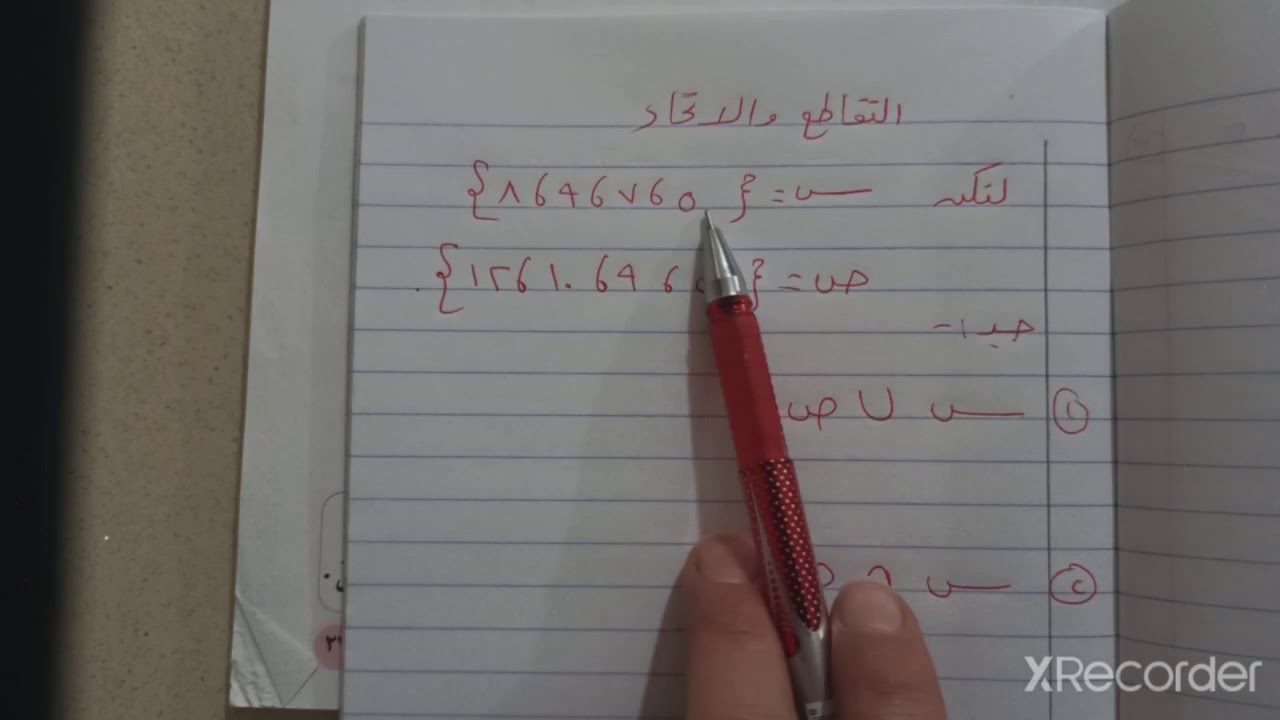 التقاطع والاتحاد
لتكن س = { ٥ ، ٧ ، ٩ ، ٨ }
ص = { ٥ ، ٩ ، ١٠ ، ١٢ }
جد :-
① س ∪ ص
② س ∩
XRecorder